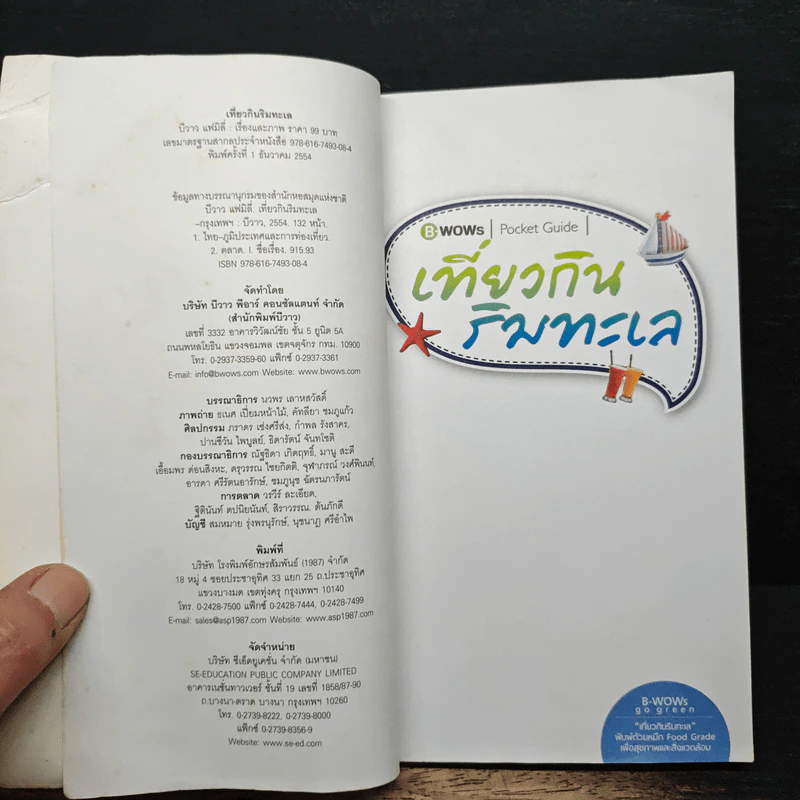 เที่ยวกินริมทะเล
บีวาว แฟมิลี่ : เรื่องและภาพ ราคา 99 บาท
เลขมาตรฐานสากลประจำหนังสือ 978-616-7493-08-4
พิมพ์ครั้งที่ 1 ธันวาคม 2554
ข้อมูลทางบรรณานุกรมของสำนักหอสมุดแห่งชาติ
บีวาว แฟมิลี่. เที่ยวกินริมทะเล
–กรุงเทพฯ : บีวาว, 2554. 132 หน้า.
1. ไทย–ภูมิประเทศและการท่องเที่ยว.
2. ตลาด. I. ชื่อเรื่อง. 915.93
ISBN 978-616-7493-08-4
จัดทำโดย
บริษัท บีวาว พีอาร์ คอนซัลแตนท์ จำกัด
(สำนักพิมพ์บีวาว)
เลขที่ 3332 อาคารวิวัฒน์ชัย ชั้น 5 ยูนิต 5A
ถนนพหลโยธิน แขวงจอมพล เขตจตุจักร กทม. 10900
โทร. 0-2937-3359-60 แฟ็กซ์ 0-2937-3361
E-mail: info@bwows.com Website: www.bwows.com
บรรณาธิการ นวพร เลาหสวัสดิ์
ภาพถ่าย ธเนศ เปี่ยมหน้าไม้, คัทลียา ชมภูแก้ว
ศิลปกรรม ภราดร เช่งศรีส่ง, กำพล รังสาคร,
ปานชีวัน ไพบูลย์, ธิดารัตน์ จันทโชติ
กองบรรณาธิการ ณัฐธิดา เกิดฤทธิ์, มานู สะดี
เอื้อมพร ต่อนสิงหะ, ดรุวรรณ ไชยกิตติ, จุฬาภรณ์ วงศ์พินนท์,
อารดา ศรีรัตนอารักษ์, ชมภูนุช ฉัตรนภารัตน์
การตลาด วรวีร์ ละเอียด,
ฐิตินันท์ ตปนียนันท์, สิราวรรณ. ต้นภักดี
บัญชี สมหมาย รุ่งพรนุรักษ์, นุชนาฏ ศรีอำไพ
พิมพ์ที่
บริษัท โรงพิมพ์อักษรสัมพันธ์ (1987) จำกัด
18 หมู่ 4 ซอยประชาอุทิศ 33 แยก 25 ถ.ประชาอุทิศ
แขวงบางมด เขตทุ่งครุ กรุงเทพฯ 10140
โทร. 0-2428-7500 แฟ็กซ์ 0-2428-7444, 0-2428-7499
E-mail: sales@asp1987.com Website: www.asp1987.com
จัดจำหน่าย
บริษัท ซีเอ็ดยูเคชั่น จำกัด (มหาชน)
SE-EDUCATION PUBLIC COMPANY LIMITED
อาคารเนชั่นทาวเวอร์ ชั้นที่ 19 เลขที่ 1858/87-90
ถ.บางนา-ตราด บางนา กรุงเทพฯ 10260
โทร. 0-2739-8222, 0-2739-8000
แฟ็กซ์ 0-2739-8356-9
Website: www.se-ed.com
B-WOWs | Pocket Guide |
เที่ยวกิน
ริมทะเล
B-WOWs
go green
"เที่ยวกินริมทะเล"
พิมพ์ด้วยหมึก Food Grade
เพื่อสุขภาพและสิ่งแวดล้อม